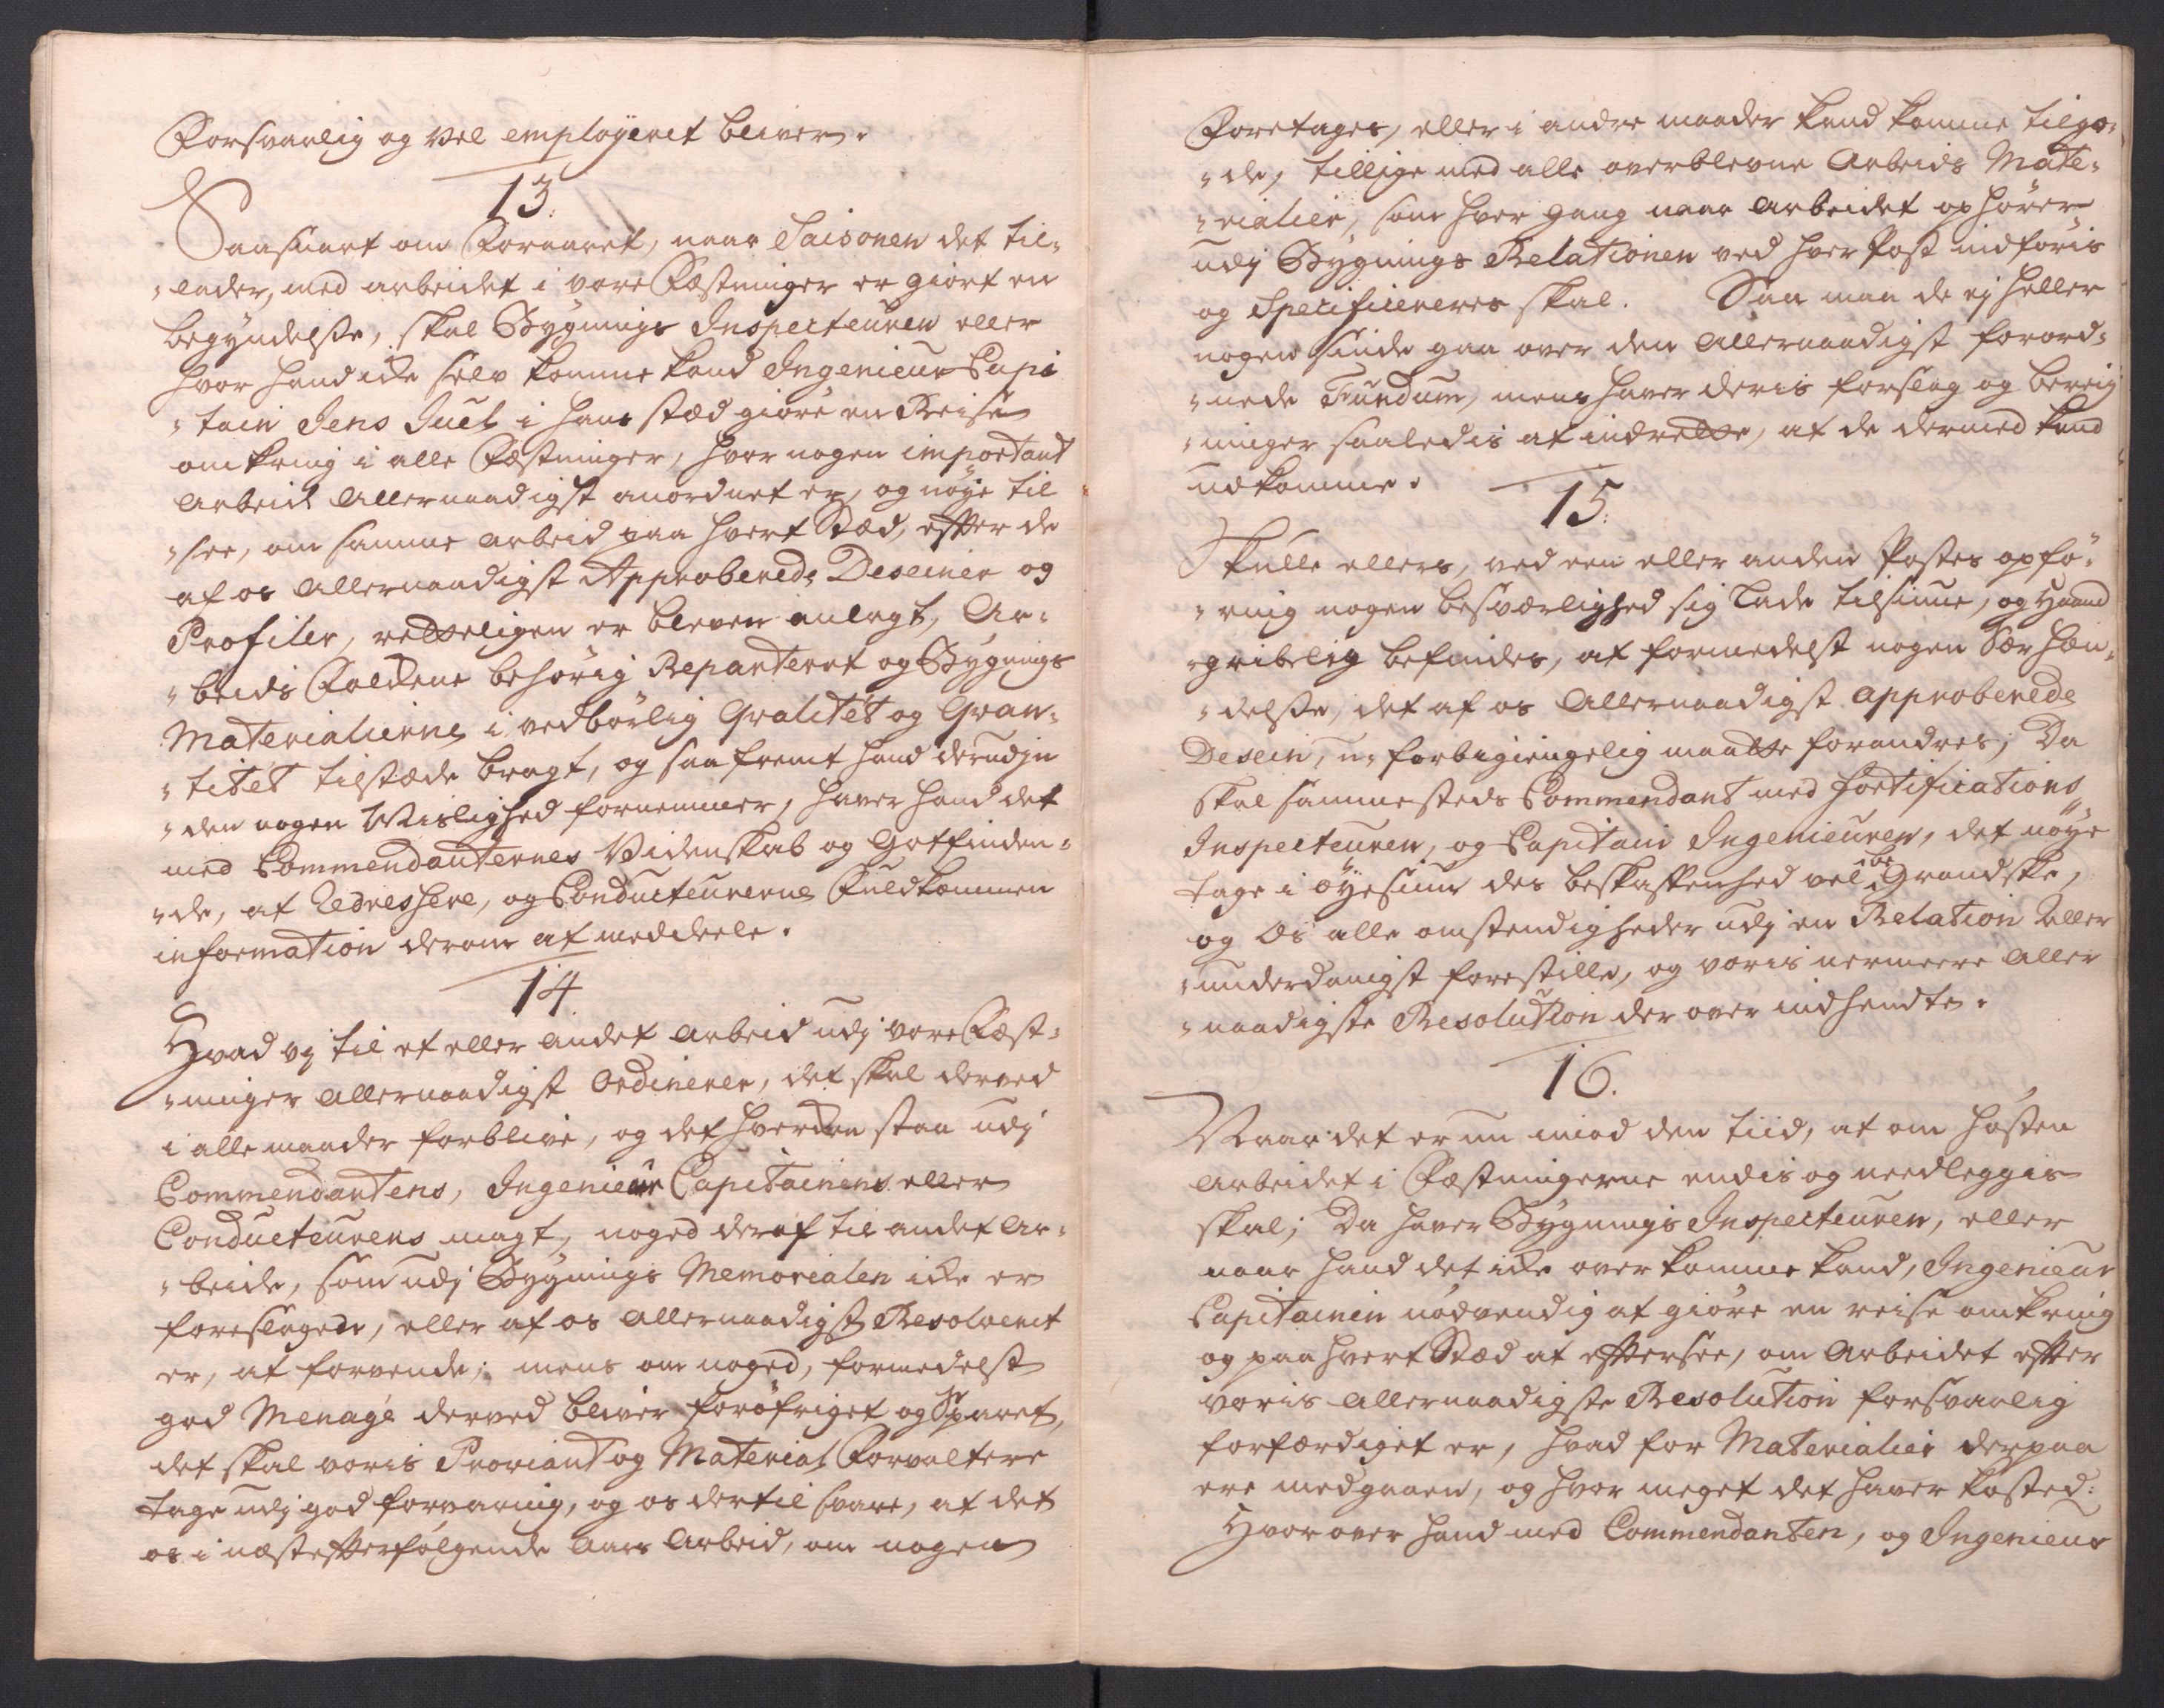 Forsvarlig og vel employeret bliver.
13.
Saasnart om Foraaret, naar Saisonen det til-
lader, med arbeidet i vore Fæstninger er giort en
begyndelse, skal Bygnings Inspecteuren eller
hvor hand icke selv komme kand Ingenieur Capi
-tain Jens Juel i hans stæd giøre en Reise
omkring i alle Fæstninger, hvor nogen important
Arbeid Allernaadigst anordnet er, og nøye til
-see, om samme Arbeid paa hvert Stæd, efter de
af os Allernaadigst Approberede Deseiner og
Profiler, retteligen er bleven anlagt, Ar-
-beids Folckene behørig Reparteret og Bygnings
Materialierne i vedbørlig Qvalitét og Qvan-
-titét tilstæde bragt, og saafremt hand derudjn
-den nogen Wislighed fornemmer, haver hand det
med Commendanternes Videnskab og Gotfinden-
-de, at Redressere, og Conducteurerne Fuldkommen
information derom at meddeele.
14
Hvad vj til et eller andet Arbeid udj vore Fæst-
-ninger Allernaadigst Ordinerer, det skal derved
i alle maader forblive, og det hverken staa udj
Commendantens, Ingenieur Capitainens eller
Conducteurens magt, noged deraf til andet Ar-
-beide, som udj Bygnings Memorialen icke er
foreslagede, eller af os Allernaadigst Resolveret
er, at forvende; mens om noged, formedelst
god Menage derved bliver forøfriget og Sparet,
det skal voris Proviant og Material Forvaltere
tage udj god forvaring, og os dertil svare, at det
os i næstefterfølgende Aars Arbeid, om nogen
Foretages, eller i andre maader kand komme tilgo-
-de, tillige med alle overblevne Arbeids Mate-
-rialier, som hver gang naar Arbeidet ophører
udj Bygnings Relationen ved hver Post indføris
og Specificereres skal. Saa maa de ej heller
nogen sinde gaa over den Allernaadigst forord-
-nede Fundum, mens haver deris forslag og bereig
-ninger saaledis at indrette, at de dermed kand
udkomme.
15.
Skulle ellers, ved een eller anden Postes opfø-
-ring nogen besværlighed sig lade tilsiune, og haand
-gribelig befindes, at formedelst nogen Sær hæn-
-delse, det af os Allernaadigst approberede
Desein, u-forbigiengelig maatte forandres; Da
skal sammesteds Commendant med Fortifications
Inspecteuren, og Capitain Ingenieuren, det nøye
tage i øyesiun des beskaffenhed vel Grandske,
og Os alle omstendigheder udj en Relation Aller
-underdanigst forestille, og voris nermeere Aller
-naadigste Resolution der over indhendte.
16.
Naar det er nu imod den tiid, at om høsten
Arbeidet i Fæstningerne endis og needleggis
skal; Da haver Bygnings Inspecteuren, eller
naar hand det icke over komme kand, Ingenieur
Capitainen nødvendig at giøre en reise omkring
og paa hvert Stæd at eftersee, om Arbeidet efter
voris Allernaadigste Resolution forsvarlig
forfærdiget er, hvad for Materialier derpaa
ere medgaaen, og hvor meget det haver kosted:
Hvorover hand med Commendanten, og Ingenieur